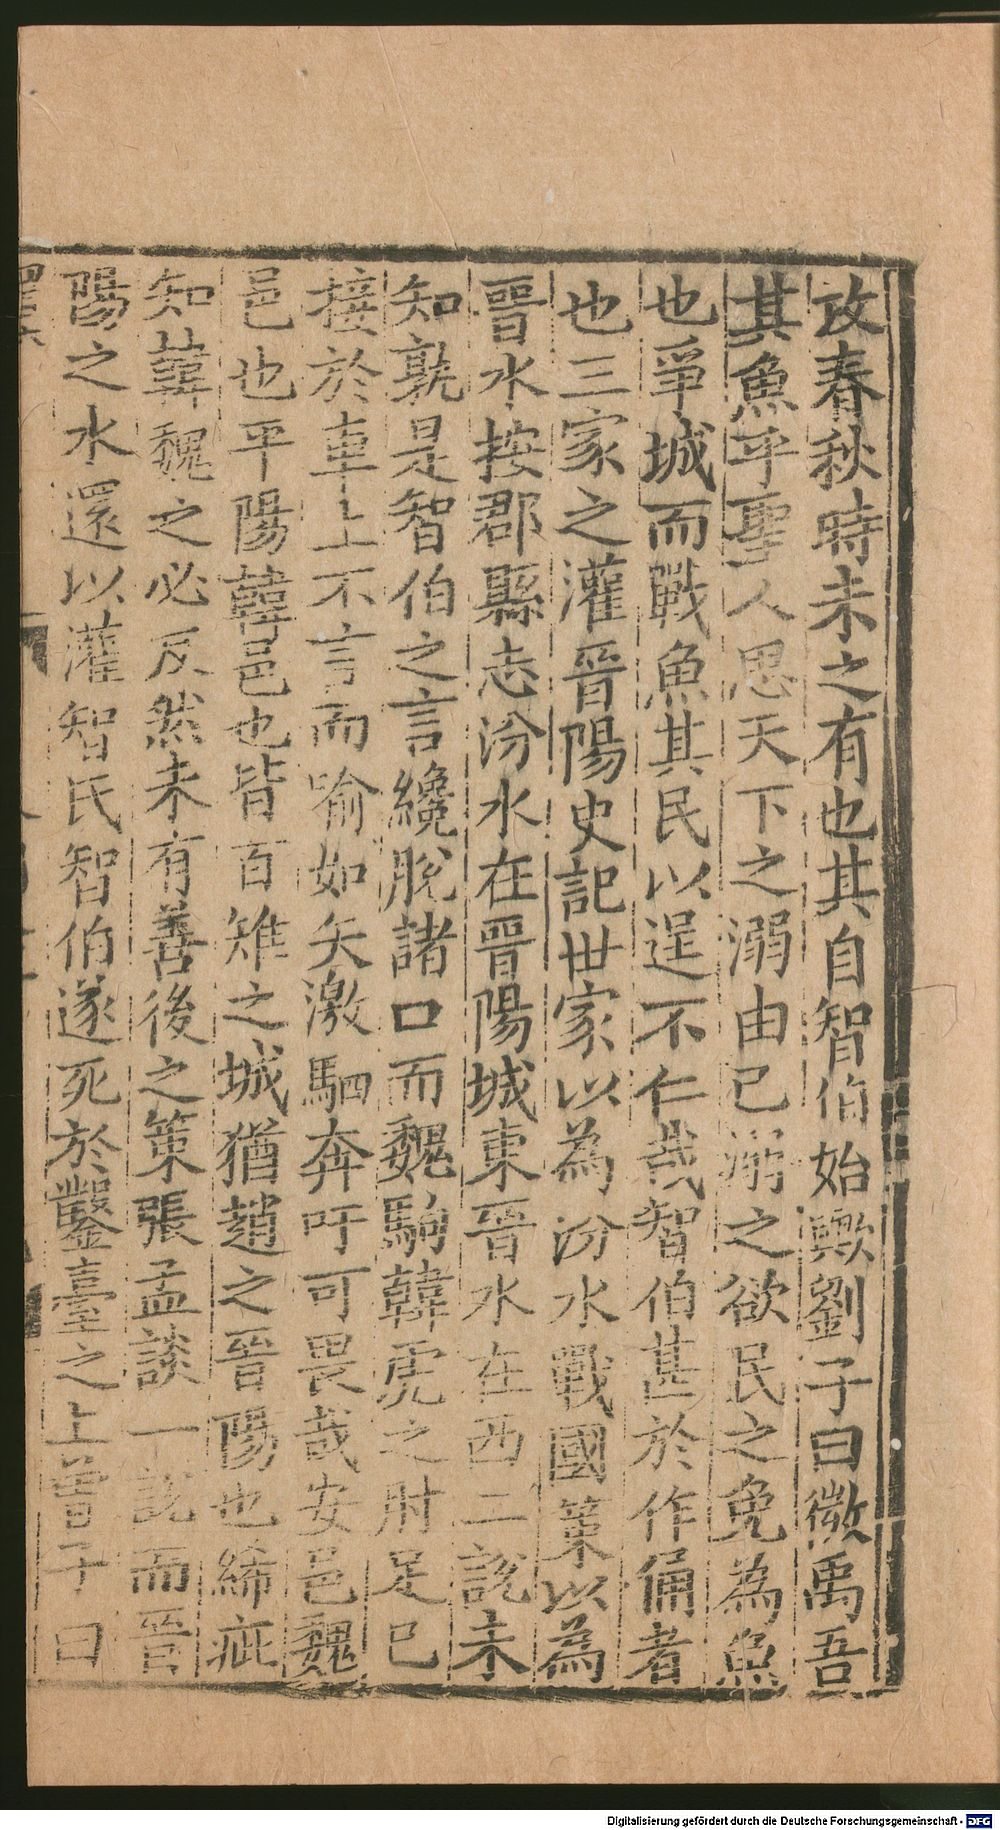 攻春秋時未之有也其自智伯始歟劉子曰微禹吾
其魚乎聖人思天下之溺由己溺之欲民之免為魚
也爭城而戰魚其民以逞不仁哉智伯甚於作俑者
也三家之灌晉陽史記世家以為汾水戰國策以為
晉水按郡縣志汾水在晉陽城東晉水在西二說未
知孰是智伯之言纔脫諸口而魏駒韓虎之肘足已
接於車上不言而喻如矢激駟奔吁可畏哉安邑魏
邑也平陽韓邑也皆百雉之城猶趙之晉陽也絺疵
知韓魏之必反然未有善後之策張孟談一說而晉
陽之水還以灌智氏智伯遂死於鑿臺之上曾子曰
Digitalisierung gefördert durch die Deutsche Forschungsgemeinschaft - DFG